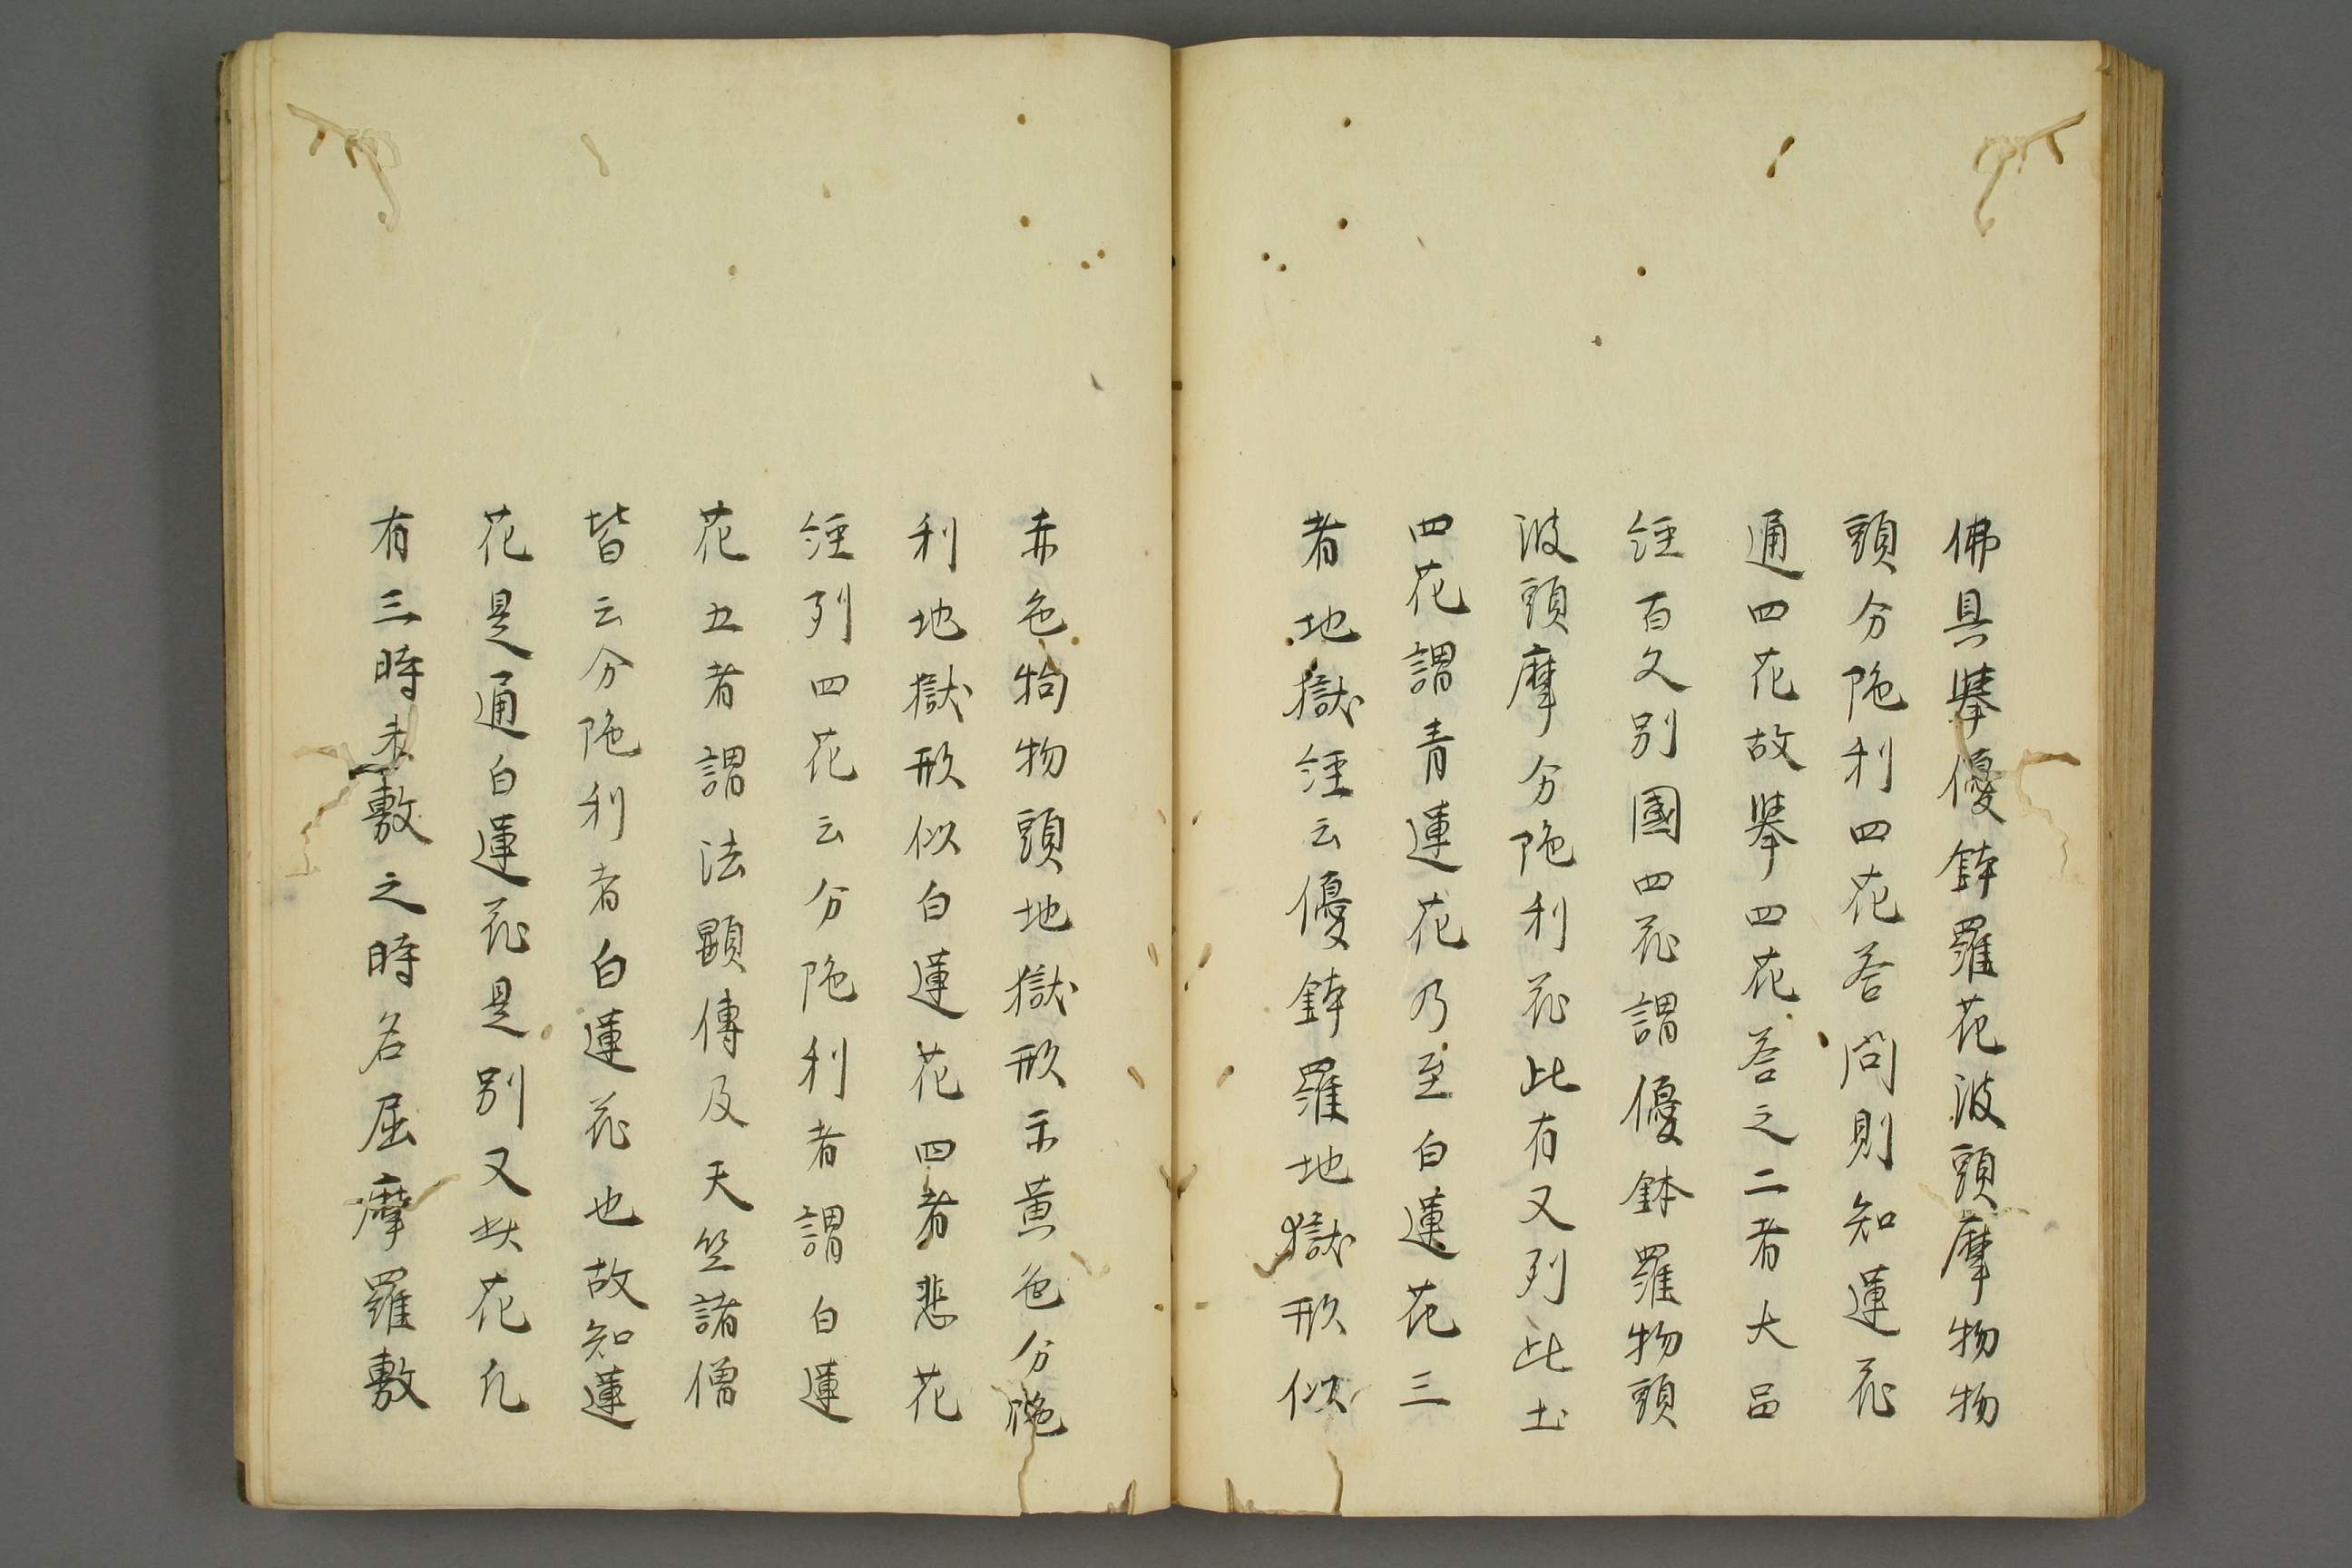 佛具擧優鉢羅花波頭摩物物
頭分陁利四花荅問則知蓮花
通四花故擧四花荅之二者大品
經百久別國四花謂優鉢羅物頭
波頭摩分陁利花此有又列此土
四花謂青蓮花乃至白蓮花三
者地獄經云優鉢羅地獄形似
赤色物物頭地獄形示黄色分陁
利地獄形似白蓮花四者悲花
經列四花云分陁利者謂白蓮
花五者謂法顕傳及天竺諸僧
皆云分陁利者白蓮花也故知蓮
花是通白蓮花是別又此花凢
有三時未敷之時名屈摩羅敷